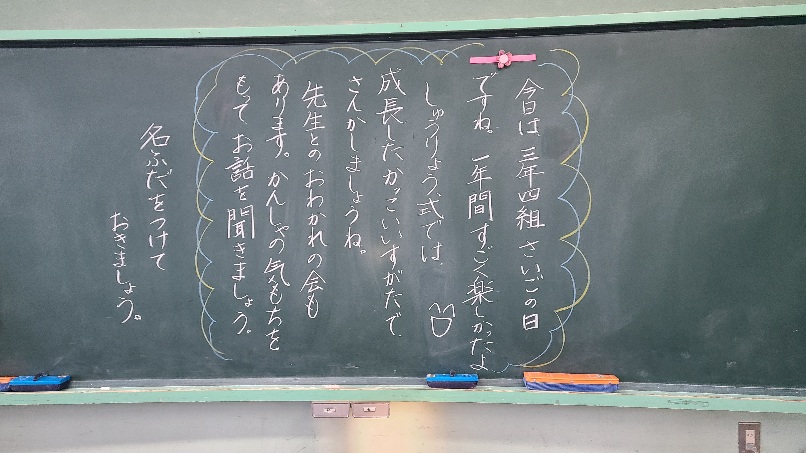 今日は、三年四組 さいごの日
ですね。一年間 すごく楽しかったよ
しゅうりょう式では、
成長した かっこいいすがたで、
さんかしましょうね。
先生との おわかれの会も
あります。かんしゃの気もちを
もって お話を聞きましょう。
名ふだをつけて
おきましょう。